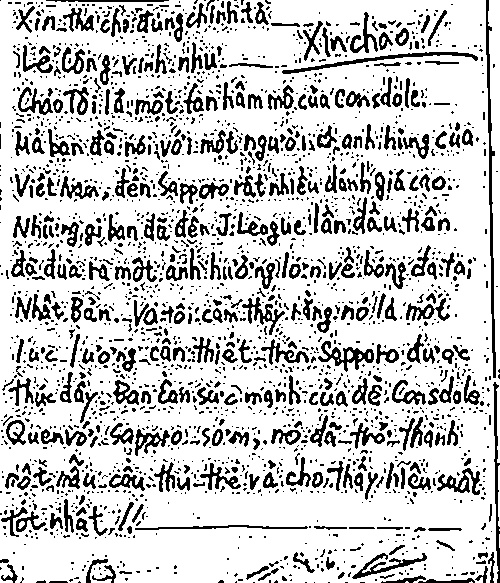 Xin tha cho đúng chính tả
Xin chào!!
Lê Công vinh như
Chào Tôi là một fan hâm mộ của Consdole.
Mà bạn đã nói với một người có anh hùng của
Việt Nam, đến Sapporo rất nhiều đánh giá cao.
Những gì bạn đã đến J.League lần đầu tiên
đã đưa ra một ảnh hưởng lớn về bóng đá tại
Nhật Bản. Và tôi cảm thấy rằng nó là một
lực lượng cần thiết trên Sapporo được
thúc đẩy. Bạn Cần sức mạnh của để Consdole.
Quen với Sapporo sớm, nó đã trở thành
một mẫu cầu thủ trẻ và cho thấy hiệu suất
tốt nhất !!